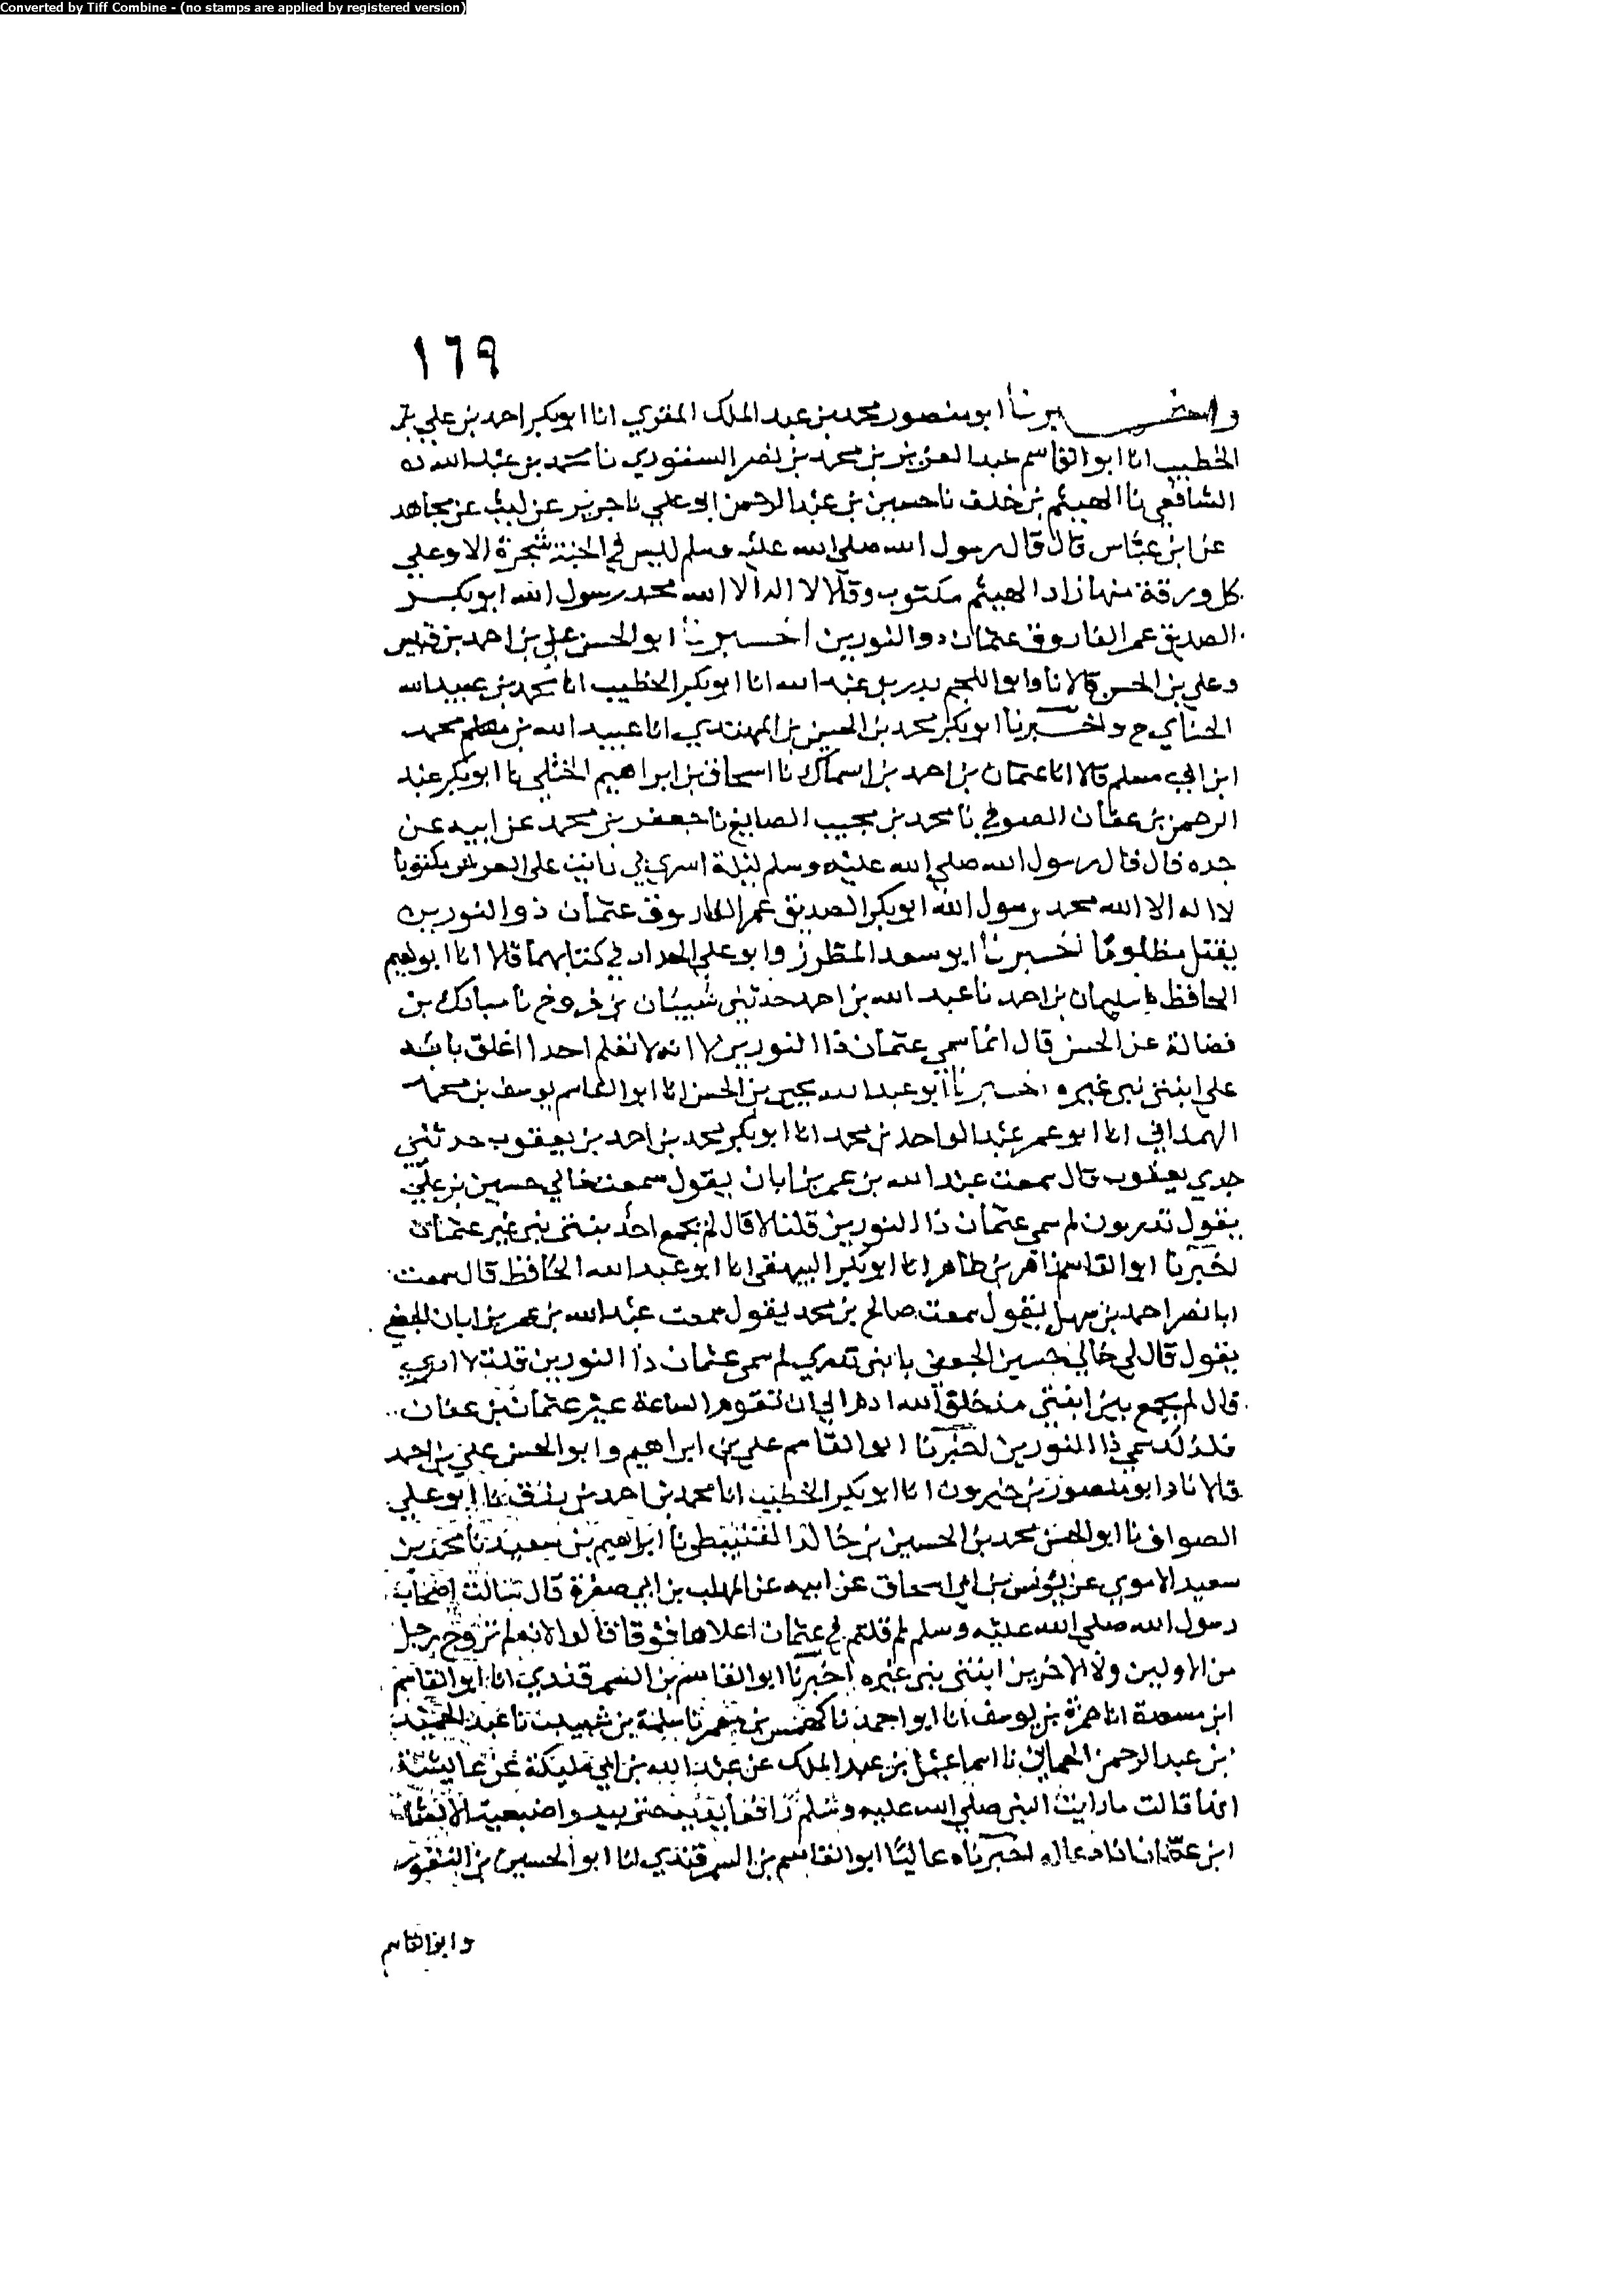 Converted by Tiff Combine - (no stamps are applied by registered version)
١٦٩
واخبرنا ابو منصور محمد بن عبد الملك المقري انا ابو بكر احمد بن علي بن
الخطيب انا ابو القاسم عبد العزيز بن محمد بن نصر الستوري نا محمد بن عبد الله
الشافعي نا الهيثم بن خلف نا حسين بن عبد الرحمن ابو علي نا جرير عن ليث عن مجاهد
عن ابن عباس قال قال رسول الله صلى الله عليه وسلم ليس في الجنة شجرة الا وعلي
كل ورقة منها زاد الهيثم مكتوب وقالا لا اله الا الله محمد رسول الله ابو بكر
الصديق عمر الفاروق عثمان ذو النورين اخبرنا ابو الحسن علي بن احمد بن قبيس
وعلي بن الحسن قالا نا وابو النجم بدر بن عبد الله انا ابو بكر الخطيب انا محمد بن عبيد الله
الحناي ح واخبرنا ابو بكر محمد بن الحسين بن المهتدي انا عبيد الله بن محمد
ابن ابي مسلم قالا انا عثمان بن احمد بن السماك نا اسحاق بن ابراهيم الختلي نا ابو بكر عبد
الرحمن بن عفان الصوفي نا محمد بن مجيب الصايغ نا جعفر بن محمد عن ابيه عن
جده قال قال رسول الله صلى الله عليه وسلم ليلة اسري بي رايت على العرش مكتوبا
لا اله الا الله محمد رسول الله ابو بكر الصديق عمر الفاروق عثمان ذو النورين
يقتل مظلوما اخبرنا ابو سعد المطرز وابو علي الحداد في كتابيهما قالا انا ابو نعيم
الحافظ نا سليمان بن احمد نا عبد الله بن احمد حدثني شيبان بن فروخ نا مبارك بن
فضالة عن الحسن قال انما سمي عثمان ذا النورين لا انه لا نعلم احدا اغلق بابه
على ابنتي نبي غيره اخبرنا ابو عبد الله يحيى بن الحسن انا ابو القاسم يوسف بن محمد
الهمداني انا ابو عمر عبد الواحد بن محمد انا ابو بكر محمد بن احمد بن يعقوب حدثني
جدي يعقوب قال سمعت عبد الله بن عمر بن ابان يقول سمعت خالي حسين بن علي
يقول تدرون لم سمي عثمان ذا النورين قلنا لا قال لم يجمع احد بنتي نبي غير عثمان
اخبرنا ابو القاسم زاهر بن طاهر انا ابو بكر البيهقي انا ابو عبد الله الحافظ قال سمعت
ابا نصر احمد بن سهل يقول سمعت صالح بن محمد يقول سمعت عبد الله بن عمر بن ابان الجعفي
يقول قال لي خالي حسين الجعفي يا بني تدري لم سمي عثمان ذا النورين قلت لا ادري
قال لم يجمع بين ابنتي منذ خلق الله ادم الى ان تقوم الساعة غير عثمان بن عفان
فلذلك سمي ذا النورين اخبرنا ابو القاسم علي بن ابراهيم وابو الحسن علي بن احمد
قالا نا وابو منصور بن خيرون انا ابو بكر الخطيب انا محمد بن احمد بن رزق نا ابو علي
الصواف نا ابو الحسن محمد بن الحسين بن خالد القنبيطي نا ابراهيم بن سعيد نا محمد بن
سعيد الاموي عن يونس بن ابي اسحاق عن ابيه عن المهلب بن ابي صفرة قال سالت اصحاب
رسول الله صلى الله عليه وسلم لم قلتم في عثمان اعلاها فوقا قالوا لا نعلم تزوج رجل
من الاولين ولا الاخرين ابنتي نبي غيره اخبرنا ابو القاسم بن السمرقندي انا ابو القاسم
ابن مسعدة انا حمزة بن يوسف انا ابو احمد نا كهمس بن معمر نا سلمة بن شبيب نا عبد الحميد
بن عبد الرحمن الحماني نا اسماعيل بن عبد الملك عن عبد الله بن ابي مليكة عن عايشة
انها قالت ما رايت النبي صلى الله عليه وسلم رافعا يديه حتى يبدو ضبعيه الا لعثمان
ابن عفان اذا دعا له اخبرناه عاليا ابو القاسم بن السمرقندي انا ابو الحسين بن النقور
وابو القاسم